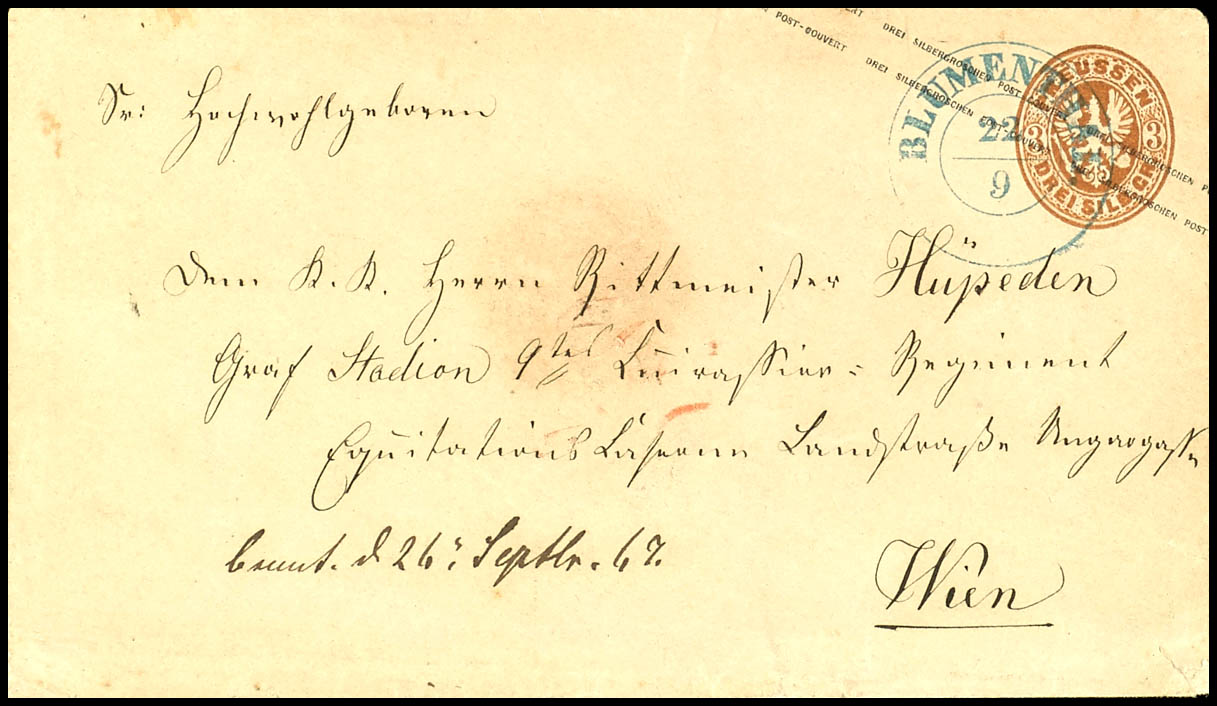 POST-COUVERT DREI SILBERGROSCHEN POST-COUVERT DREI SILBERGROSCHEN
POST-COUVERT DREI SILBERGROSCHEN POST-COUVERT DREI SILBERGROSCHEN POST
BLUMENTHAL
22
9
PREUSSEN
3 3
DREI SILB. GR.
Sr: Hochwohlgeboren
Dem K. K. Herrn Rittmeister Hüpeden
Graf Stadion 9tes Cuirassier-Regiment
Equitations Caserne Landstraße Ungargasse
Wien
d 26r Septbr. 67.